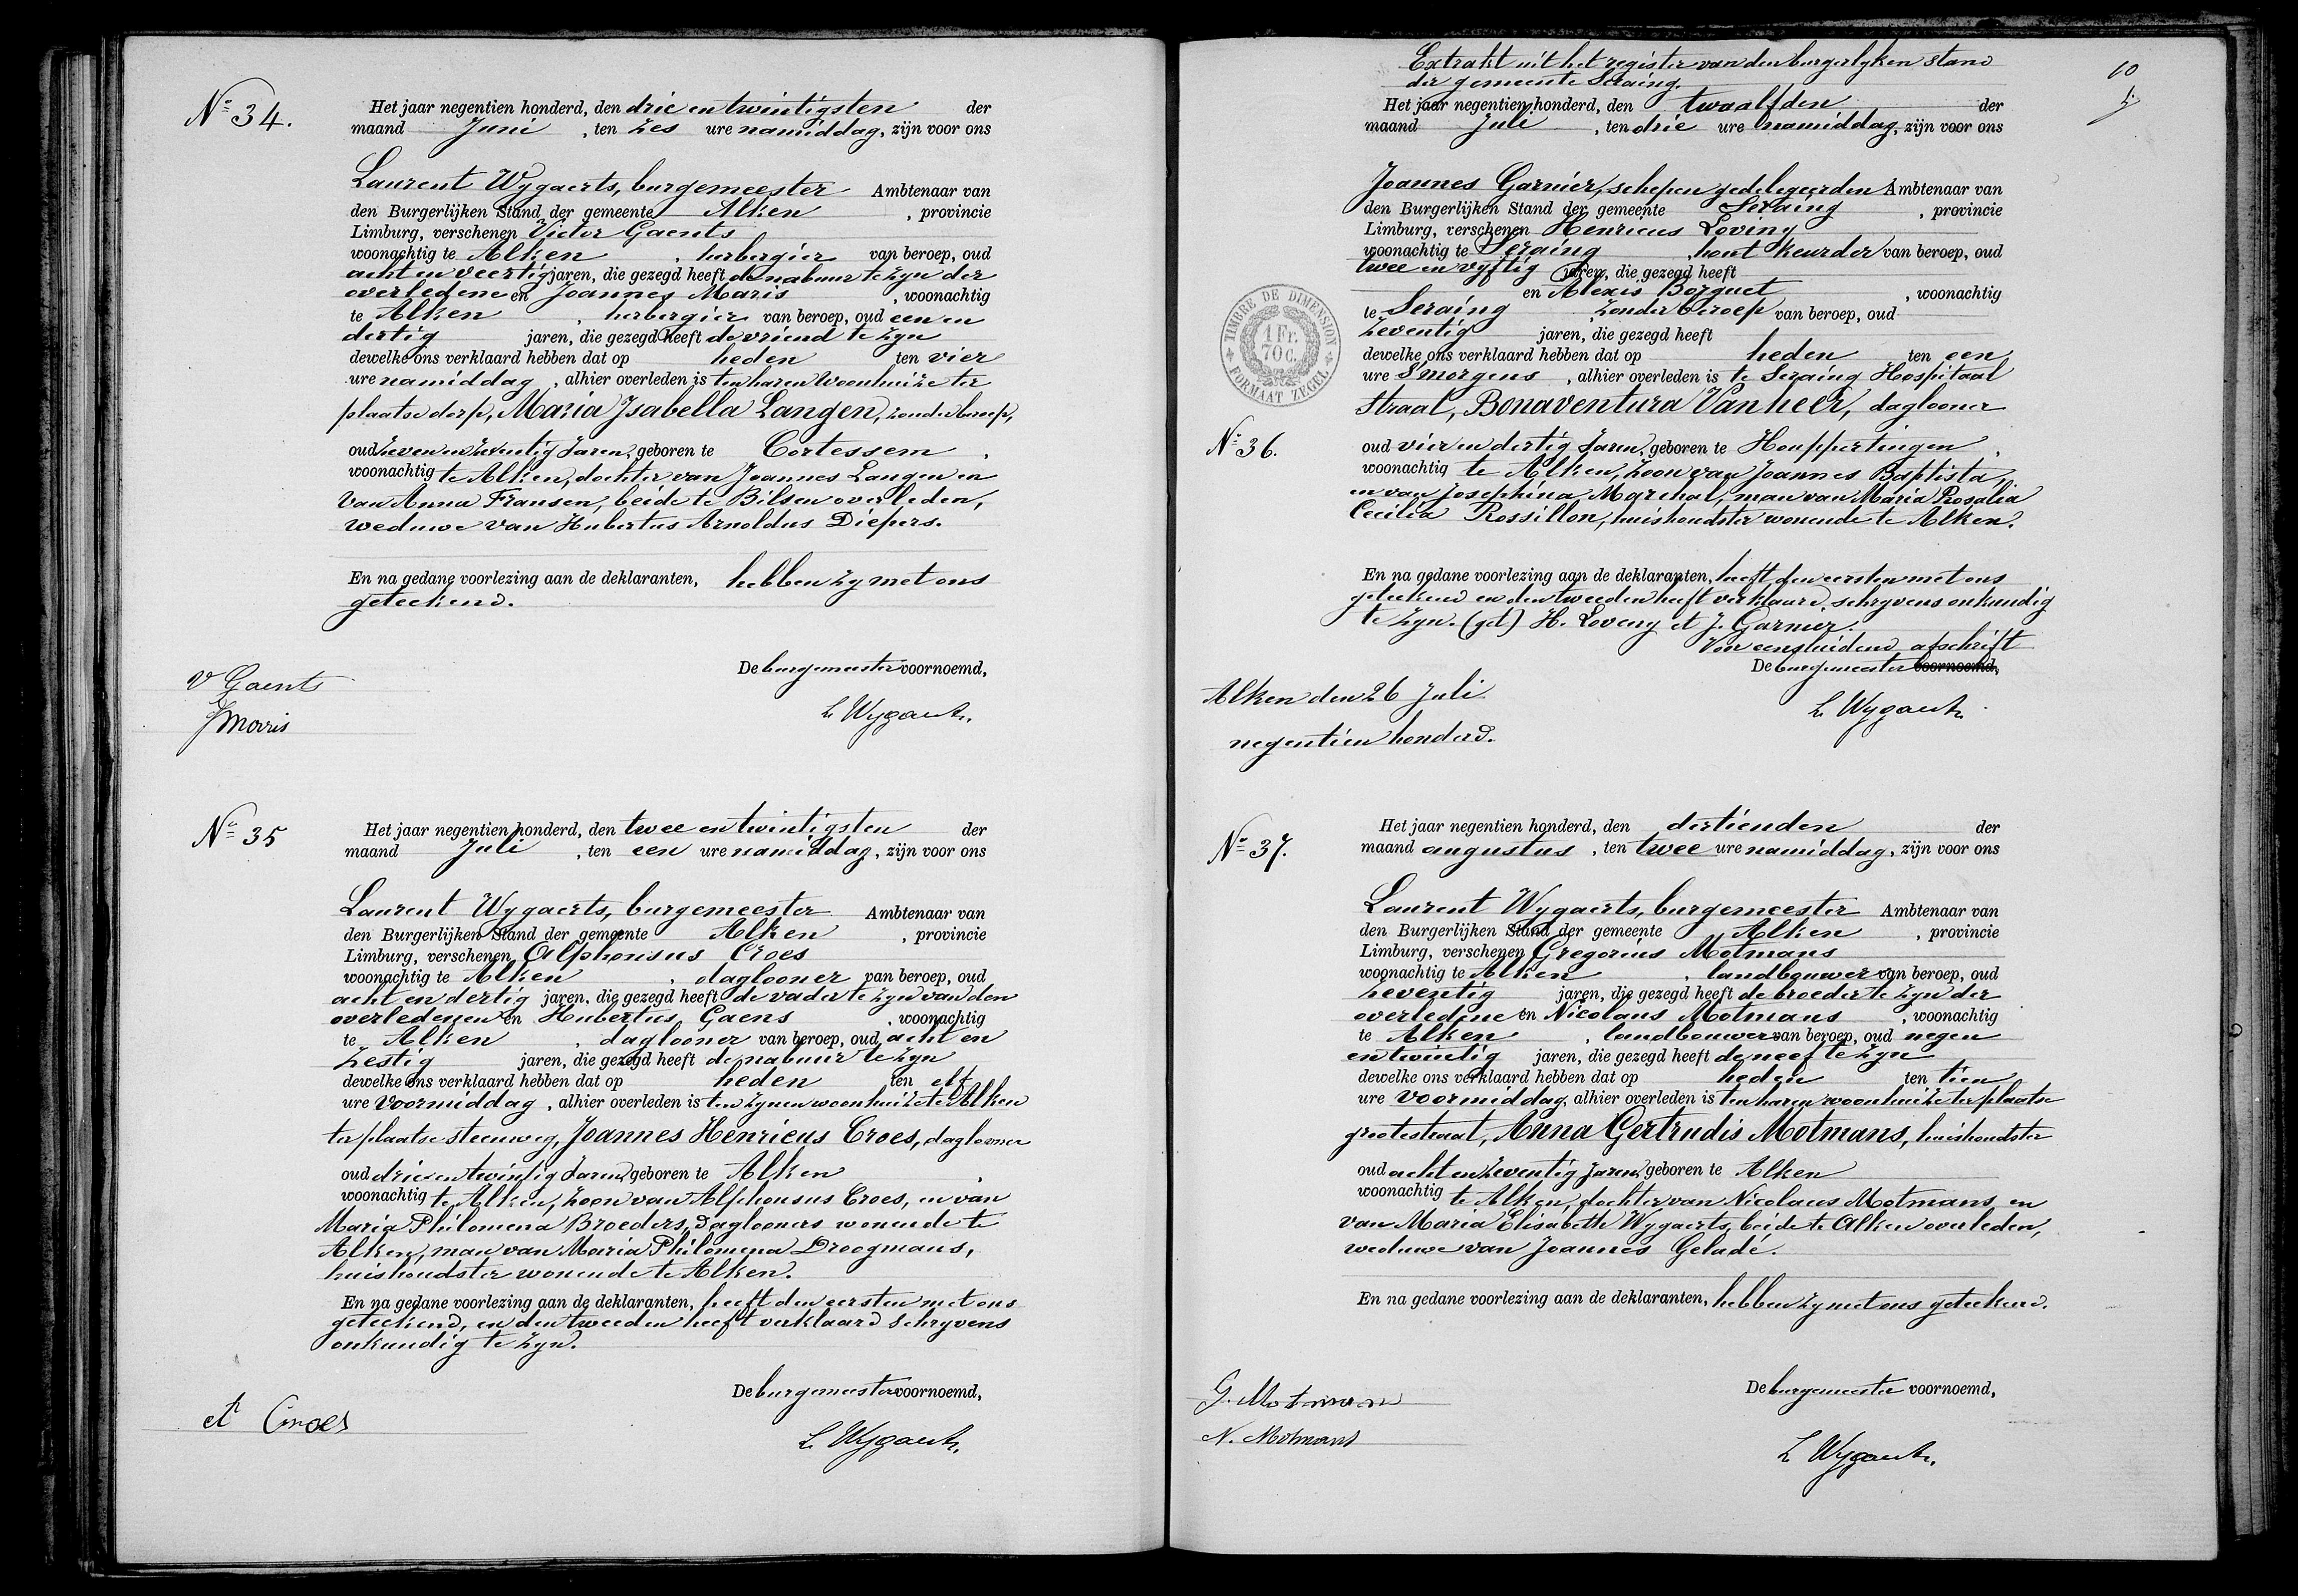 Nº 34.
Het jaar negentien honderd, den drie en twintigsten der
maand Juni , ten zes ure namiddag, zijn voor ons
Laurent Wygaerts, burgemeester Ambtenaar van
den Burgerlijken Stand der gemeente Alken , provincie
Limburg, verschenen Victor Gaents
woonachtig te Alken , herbergier van beroep, oud
acht en veertig jaren, die gezegd heeft de nabuur te zyn der
overledene en Joannes Maris , woonachtig
te Alken , herbergier van beroep, oud een en
dertig jaren, die gezegd heeft de vriend te zyn
dewelke ons verklaard hebben dat op heden ten vier
ure namiddag , alhier overleden is ten haren woonhuize ter
plaatse dorp, Maria Isabella Langen, zonder beroep,
oud zeven en zeventig Jaren, geboren te Cortessem ,
woonachtig te Alken, dochter van Joannes Langen en
van Anna Fransen, beide te Bilsen overleden,
weduwe van Hubertus Arnoldus Diepers.
En na gedane voorlezing aan de deklaranten, hebben zy met ons
geteekend.
De burgemeester voornoemd,
V Gaents
J Maris
L. Wygaerts.
Nº 35
Het jaar negentien honderd, den twee en twintigsten der
maand Juli , ten een ure namiddag, zijn voor ons
Laurent Wygaerts, burgemeester Ambtenaar van
den Burgerlijken Stand der gemeente Alken , provincie
Limburg, verschenen Alphonsus Croes
woonachtig te Alken , daglooner van beroep, oud
acht en dertig jaren, die gezegd heeft de vader te zyn van den
overledenen en Hubertus Gaens , woonachtig
te Alken , daglooner van beroep, oud acht en
zestig jaren, die gezegd heeft de nabuur te zyn
dewelke ons verklaard hebben dat op heden ten elf
ure voormiddag , alhier overleden is ten zynen woonhuize te Alken
ter plaatse steenweg, Joannes Henricus Croes, daglooner
oud drie en twintig Jaren, geboren te Alken ,
woonachtig te Alken, zoon van Alphonsus Croes, en van
Maria Philomena Broeders, daglooners wonende te
Alken, man van Maria Philomena Droogmans,
huishoudster wonende te Alken.
En na gedane voorlezing aan de deklaranten, heeft den eersten met ons
geteekend, en den tweeden heeft verklaard schryvens
onkundig te zyn.
De burgemeester voornoemd,
A Croes
L. Wygaerts.
10
Extrakt uit het register van den burgerlyken stand
der gemeente Seraing.
Het jaar negentien honderd, den twaalfden der
maand Juli , ten drie ure namiddag, zijn voor ons
Joannes Garnier, schepen gedelegeerden Ambtenaar van
den Burgerlijken Stand der gemeente Seraing , provincie
Limburg, verschenen Henricus Loviny
woonachtig te Seraing , hout keurder van beroep, oud
twee en vyftig jaren, die gezegd heeft
en Alexis Borguet , woonachtig
te Seraing , zonder beroep van beroep, oud
zeventig jaren, die gezegd heeft
dewelke ons verklaard hebben dat op heden ten een
ure Smorgens , alhier overleden is te Seraing Hospitaal
Straat, Bonaventura Vanheer, daglooner
TIMBRE DE DIMENSION
1 Fr.
70 C.
FORMAAT ZEGEL
Nº 36.
oud vier en dertig Jaren, geboren te Houppertingen ,
woonachtig te Alken, zoon van Joannes Baptista,
en van Josephina Marchal, man van Maria Rosalia
Cecilia Rossillon, huishoudster wonende te Alken.
En na gedane voorlezing aan de deklaranten, heeft den eersten met ons
geteekend en den tweeden heeft verklaard schryvens onkundig
te zyn. (get) H. Loveny et J. Garnier.
Voor eensluidend afschrift
De burgemeester voornoemd,
Alken den 26 Juli
negentien honderd.
L. Wygaerts.
Nº 37.
Het jaar negentien honderd, den dertienden der
maand augustus , ten twee ure namiddag, zijn voor ons
Laurent Wygaerts, burgemeester Ambtenaar van
den Burgerlijken Stand der gemeente Alken , provincie
Limburg, verschenen Gregorius Motmans
woonachtig te Alken , landbouwer van beroep, oud
zeventig jaren, die gezegd heeft de broeder te zyn der
overledene en Nicolaus Motmans , woonachtig
te Alken , landbouwer van beroep, oud negen
en twintig jaren, die gezegd heeft de neef te zyn
dewelke ons verklaard hebben dat op heden ten tien
ure voormiddag, alhier overleden is ten haren woonhuize ter plaatse
grootestraat, Anna Gertrudis Motmans, huishoudster
oud acht en zeventig Jaren, geboren te Alken
woonachtig te Alken, dochter van Nicolaes Motmans en
van Maria Elisabeth Wygaerts, beide te Alken overleden,
weduwe van Joannes Geladé.
En na gedane voorlezing aan de deklaranten, hebben zy met ons geteekend.
De burgemeester voornoemd,
G. Motmans
N. Motmans
L Wygaerts.